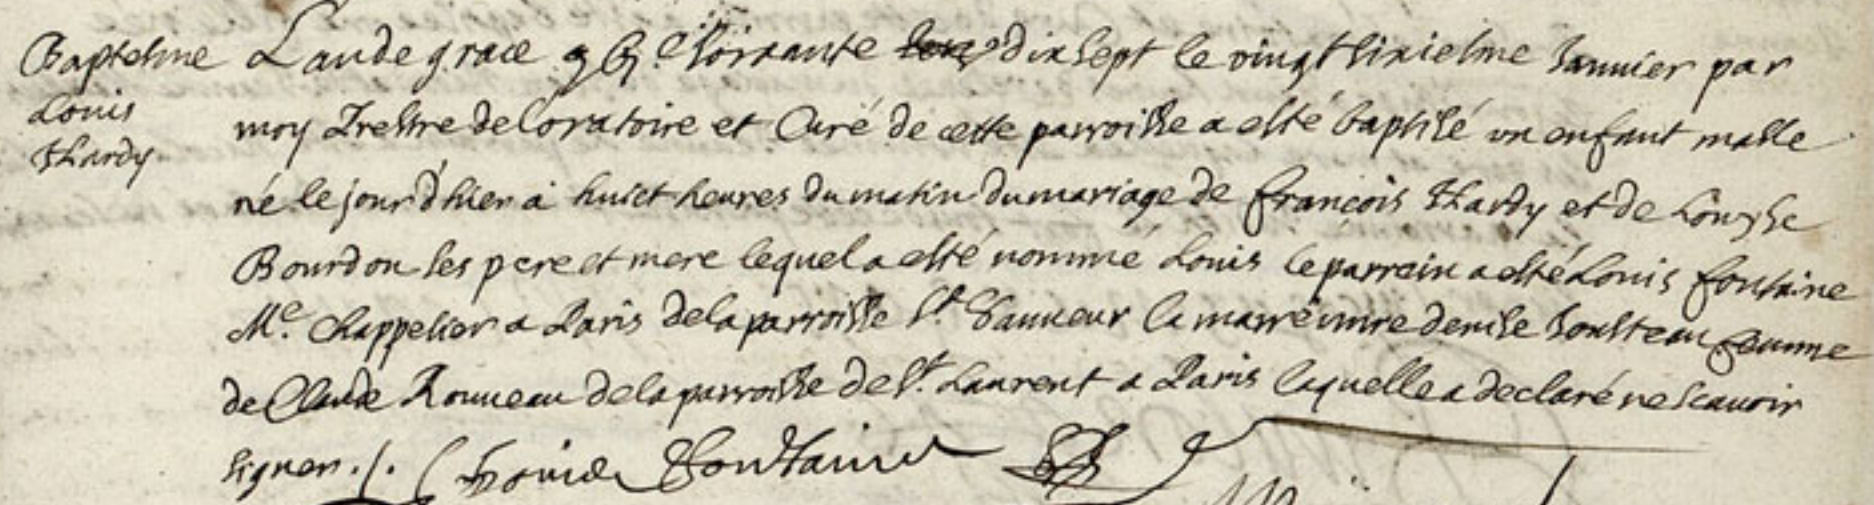 Baptesme Louis Hardy
L'an de grace g bj.c soixante dix sept le vingt sixiesme Januier par
moy Prestre de Loratoire et Curé de cette parroisse a esté baptisé un enfant masle
né le jour d'hier a huict heures du matin du mariage de francois Hardy et de Louyse
Bourdon ses pere et mere lequel a esté nommé Louis le parrein a esté Louis fontaine
Me. Chappelier a Paris de la parroisse St. Sauueur la marreinne denise femme
de Claude Rouueau de la parroisse de St. Laurent a Paris laquelle a declaré ne scauoir
signer ./. Louis Fontaine